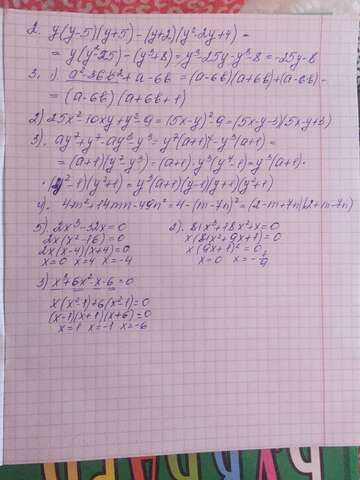 2. y(y-5)(y+5)-(y+2)(y²-2y+4)=
= y(y²-25)-(y³+8)=y³-25y-y³-8=-25y-8
3. 1) a²-36b²+a-6b=(a-6b)(a+6b)+(a-6b)=
=(a-6b)(a+6b+1)
2) 25x²-10xy+y²-9=(5x-y)²-9=(5x-y-3)(5x-y+3)
3). ay⁷+y⁷-ay³-y³=y⁷(a+1)-y³(a+1)=
=(a+1)(y⁷-y³)=(a+1)·y³(y⁴-1)=y³(a+1)·
·(y²-1)(y²+1)=y³(a+1)(y-1)(y+1)(y²+1)
4). 4-m²+14mn-49n²=4-(m-7n)²=(2-m+7n)(2+m-7n)
5) 2x³-32x=0
2x(x²-16)=0
2x(x-4)(x+4)=0
x=0 x=4 x=-4
2). 81x³+18x²+x=0
x(81x²+9x+1)=0
x(9x+1)²=0
x=0 x=-1/9
3) x³+6x²-x-6=0
x(x²-1)+6(x²-1)=0
(x-1)(x+1)(x+6)=0
x=1 x=-1 x=-6
БУКВАРЬ